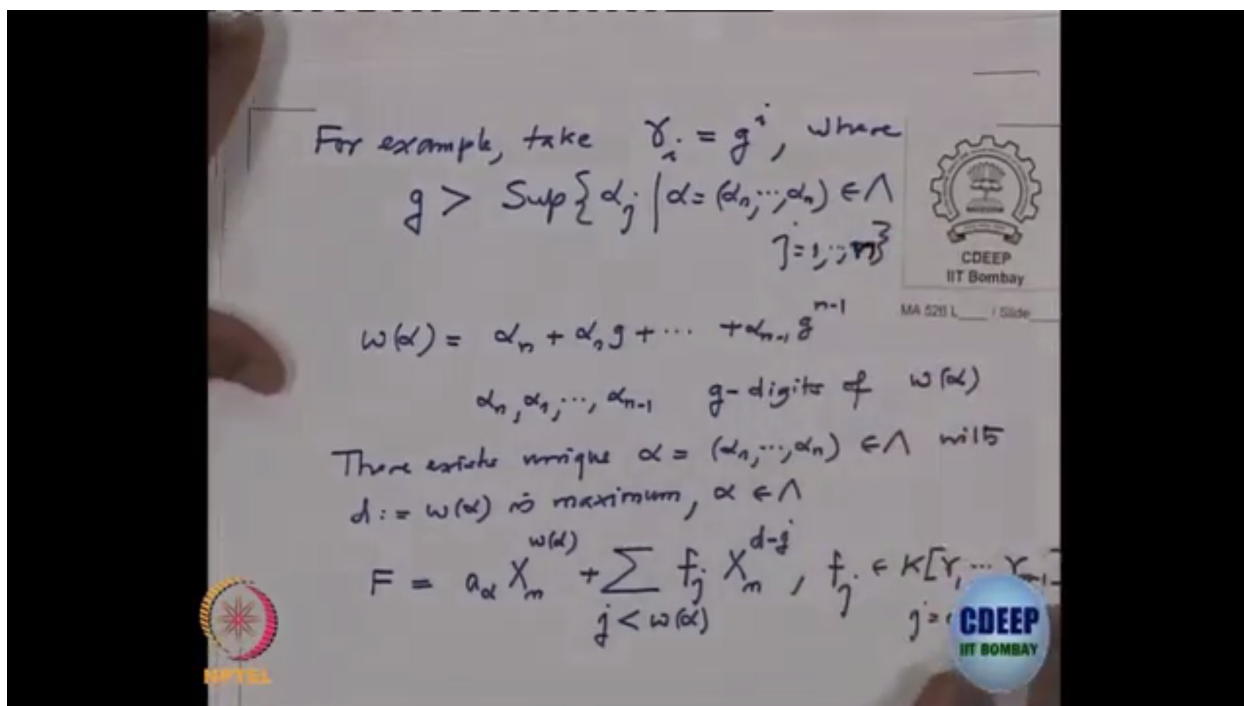 For example, take γ_i = g^i, where
g > Sup{ α_j | α = (α_1, ..., α_n) ∈ Λ
j = 1, ..., n}
CDEEP
IIT Bombay
MA 526 L___ / Slide___
w(α) = α_n + α_1 g + ... + α_{n-1} g^{n-1}
α_n, α_1, ..., α_{n-1} g-digits of w(α)
There exists unique α = (α_1, ..., α_n) ∈ Λ with
d := w(α) is maximum, α ∈ Λ
F = a_α X_n^{w(α)} + ∑_{j < w(α)} f_j X_n^{d-j}, f_j ∈ K[Y_1 ... Y_{n-1}]
j =
NPTEL
CDEEP
IIT BOMBAY